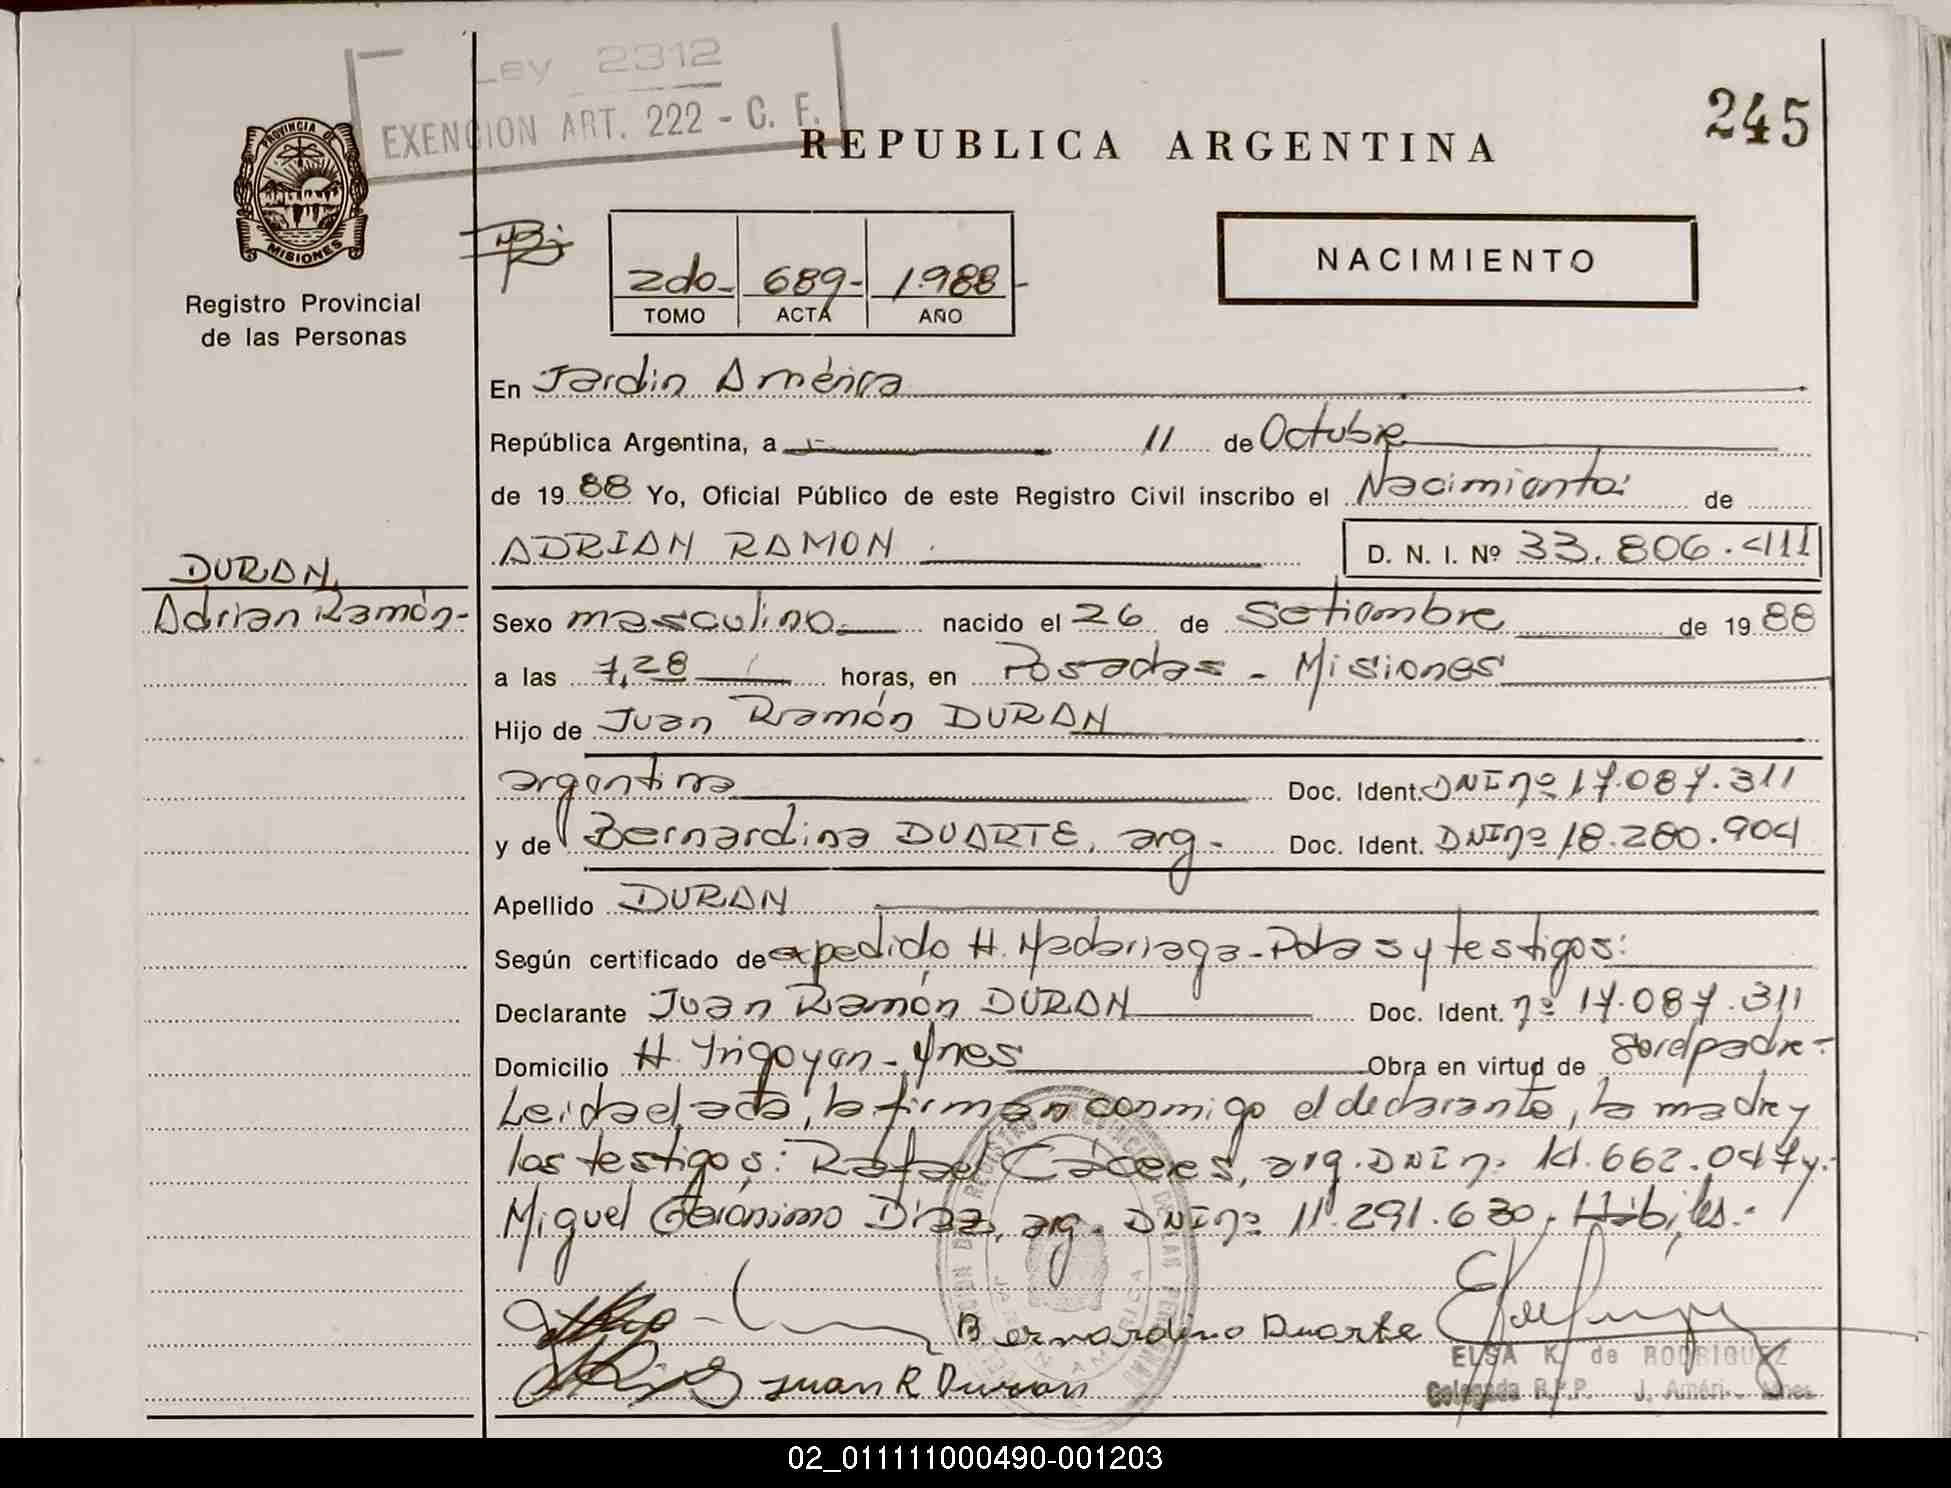 Ley 2312
EXENCION ART. 222 - C. F.
245
PROVINCIA DE
MISIONES
REPUBLICA ARGENTINA
Registro Provincial
de las Personas
2do- 689- 1.988-
TOMO ACTA AÑO
NACIMIENTO
En Jardin América
República Argentina, a 11 de Octubre
de 19 88 Yo, Oficial Público de este Registro Civil inscribo el Nacimiento: de
ADRIAN RAMON D. N. I. Nº 33.806.411
DURAN,
Adrian Ramón-
Sexo masculino nacido el 26 de Setiembre de 19 88
a las 7,28 horas, en Posadas - Misiones
Hijo de Juan Ramón DURAN
argentina Doc. Ident. DNI nº 17.087.311
y de Bernardina DUARTE, arg. Doc. Ident. DNI nº 18.280.904
Apellido DURAN
Según certificado de expedido H. Madariaga-Pdas y testigos:
Declarante Juan Ramón DURAN Doc. Ident. nº 17.087.311
Domicilio H. Yrigoyen - Mnes Obra en virtud de Ser el padre-
Leida el acta, la firman conmigo el declarante, la madre y
los testigos: Rafael Cáceres, arg. DNI n. 14.662.047 y-
Miguel Gerónimo Díaz, arg. DNI nº 11.291.630, Hábiles.-
Bernardino Duarte
Juan R Duran
ELSA K. de RODRIGUEZ
Delegada R.P.P. J. Améri- Mnes
02_011111000490-001203